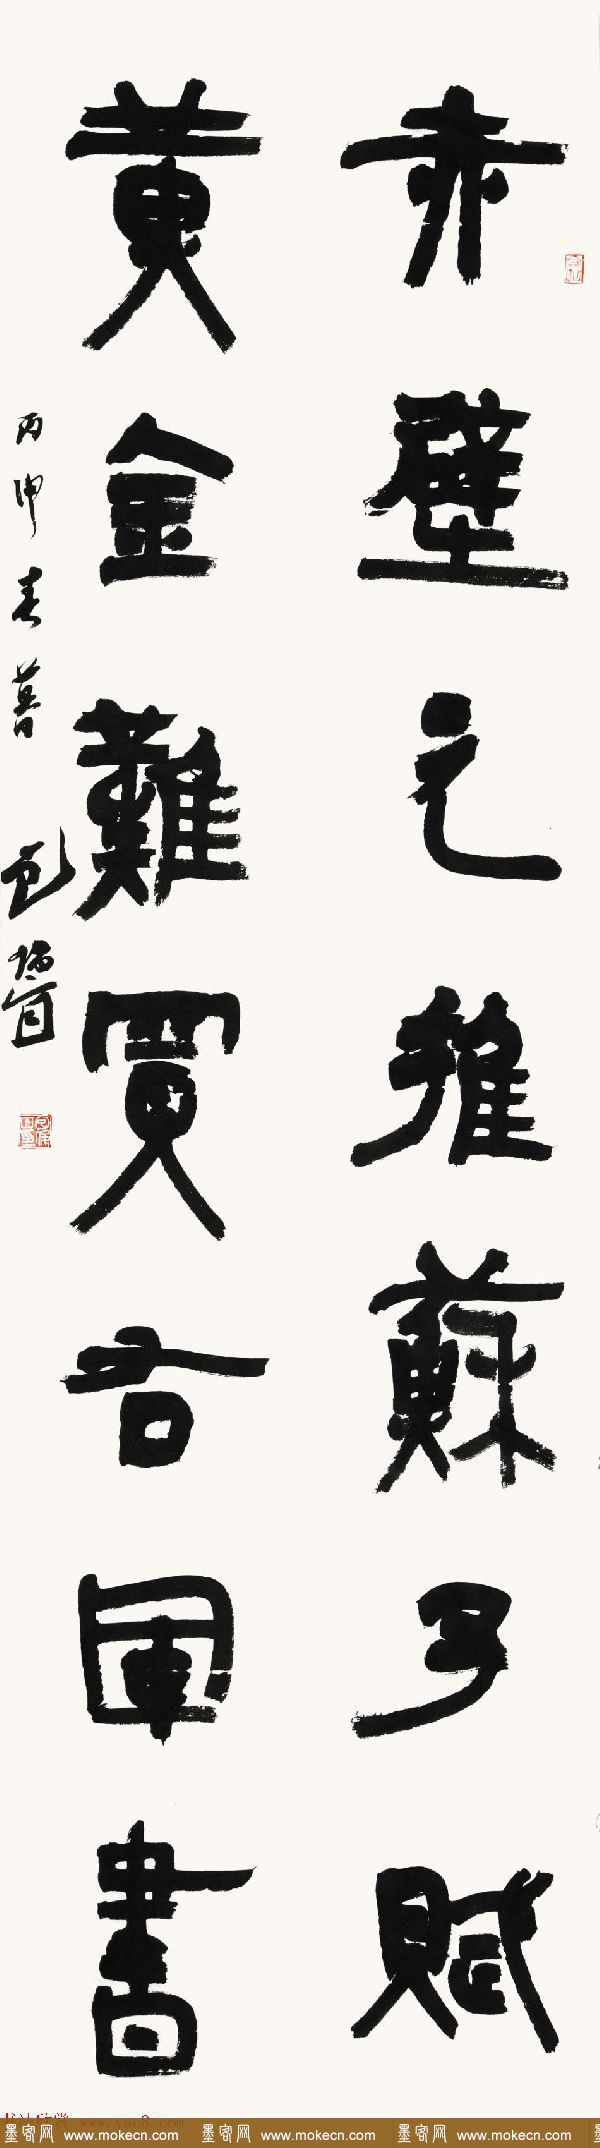 赤壁之雅蘇子賦
黃金難買右軍書
丙申春暮
墨客网 www.mokecn.com 墨客网 www.mokecn.com 墨客网 www.mokecn.com